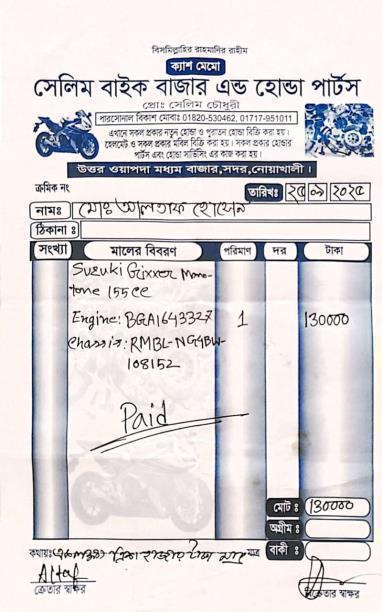 বিসমিল্লাহির রাহমানির রাহীম
ক্যাশ মেমো
সেলিম বাইক বাজার এন্ড হোন্ডা পার্টস
প্রোঃ সেলিম চৌধুরী
পারসোনাল বিকাশ মোবাঃ 01820-530462, 01717-951011
এখানে সকল প্রকার নতুন হোন্ডা ও পুরাতন হোন্ডা বিক্রি করা হয়।
হেলমেট ও সকল প্রকার মবিল বিক্রি করা হয়। সকল প্রকার হোন্ডার
পার্টস এবং হোন্ডা সার্ভিসিং এর কাজ করা হয়।
উত্তর ওয়াপদা মধ্যম বাজার,সদর,নোয়াখালী।
ক্রমিক নং তারিখঃ ২৫ ০৯ ২০২৫
নামঃ মোঃ আলতাফ হোসেন
ঠিকানাঃ
সংখ্যা মালের বিবরণ পরিমাণ দর টাকা
Suzuki Gixxer Mono-
tone 155cc
Engine: BGA1643327 1 130000
Chassis: RMBL-NG4BW-
108152
Paid
মোটঃ 130000
অগ্রীমঃ
কথায়ঃ একলক্ষ ত্রিশ হাজার টাকা মাত্র মাত্র বাকীঃ
Altaf
ক্রেতার স্বাক্ষর বিক্রেতার স্বাক্ষর